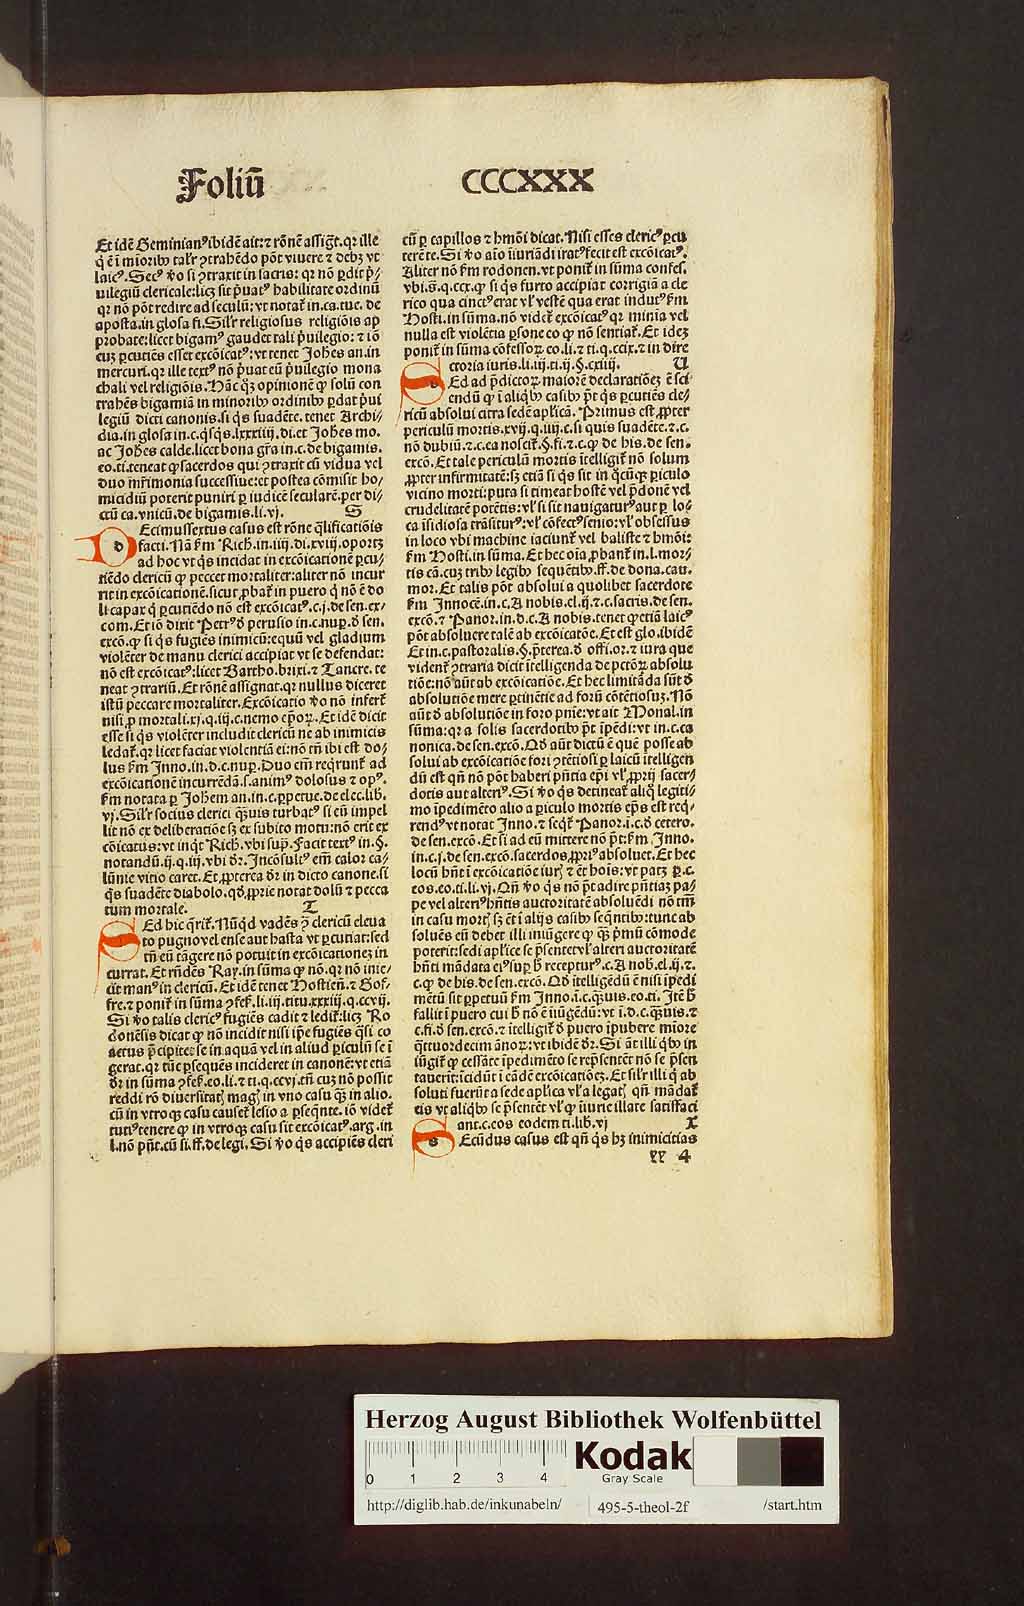 Foliū CCCXXX
Et idē Geminianꝰ ibidē ait: ⁊ rōnē assigt̄. qr ille
q̄ ē ī mioribꝰ talr ꝯtrahēdo pōt viuere ⁊ debꝫ vt
laicꝰ. Secꝰ v̄o si ꝯtraxit in sacris: qr nō ꝑdit p̄-
uilegiū clericale: licꝫ sit p̄uatꝰ habilitate ordinū
qr nō pōt redire ad seculū: vt notat̄ in. ca. tue. de
aposta. in glosa fi. Silr religiosus religiōis ap
probate: licet bigamꝰ gaudet tali p̄uilegio: ⁊ iō
eūꝫ ꝑcutiēs esset excōicatꝰ: vt tenet Johēs an. in
mercuri. qr ille textꝰ nō p̄uat eū p̄uilegio mona
chali vel religiōis. Hāc qꝫ opinionē ꝙ solū con
trahēs bigamiā in minoribꝰ ordinibꝰ ꝑdat p̄ui
legiū dicti canonis. si q̄s suadēte. tenet Archi-
dia. in glosa in. c. q̄sq̄s. lxxxiiij. di. et Johēs mo.
ac Johēs calde. licet bona gr̄a in. c. de bigamis.
eo. ti. teneat ꝙ sacerdos qui ꝯtraxit cū vidua vel
duo mr̄imonia successiue: et postea cōmisit ho-
micidiū poterit puniri ꝑ iudicē secularē. per di-
ctū ca. vnicū. de bigamis. li. vj. S
Decimussextus casus est rōne q̄lificatiōis
facti. Nā fm̄ Rich. in. iiij. di. xviij. oportꝫ
ad hoc vt q̄s incidat in excōicationē ꝑcu-
tiēdo clericū ꝙ peccet mortaliter: aliter nō incur
rit in excōicationē. sicut ꝓbat̄ in puero q̄ nō ē do
li capax q̄ ꝑcutiēdo nō est excōicatꝰ. c. j. de sen. ex-
com. Et iō dixit Petrꝰ d̄ perusio in. c. nuꝑ. d̄ sen.
excō. ꝙ si q̄s fugiēs inimicū: equū vel gladium
violēter de manu clerici accipiat vt se defendat:
nō est excōicatꝰ: licet Bartho. brixi. ⁊ Tancre. te
neat ꝯtrariū. Et rōnē assignat. qr nullus diceret
istū peccare mortaliter. Excōicatio v̄o nō infert̄
nisi ꝓ mortali. xj. q. iij. c. nemo ep̄oꝝ. Et idē dicit
esse si q̄s violēter includit clericū ne ab inimicis
ledat̄. qr licet faciat violentiā ei: nō tn̄ ibi est do-
lus fm̄ Inno. in. d. c. nuꝑ. Duo em̄ reqrunt̄ ad
excōicationē incurrēdā. s. animꝰ dolosus ⁊ opꝰ.
fm̄ notata ꝑ Johem an. in. c. ꝑpetue. de elec. lib.
vj. Silr socius clerici q̄uis turbatꝰ si eū impel
lit nō ex deliberatiōe sꝫ ex subito motu: nō erit ex
cōicatus: vt inq̄t Rich. vbi sup̄. Facit textꝰ in. §.
notandū. ij. q. iij. vbi dr̄. Incōsultꝰ em̄ calor ca-
lūnie vitio caret. Et, ꝓpterea dr̄ in dicto canone. si
q̄s suadēte diabolo. qd̄, ꝓprie notat dolū ⁊ pecca
tum mortale. T
Sed hic q̄rit̄. Nūqd vadēs ꝯ clericū eleua
to pugno vel ense aut hasta vt ꝑcutiat: sed
tn̄ eū tāgere nō potuit in excōicationeꝫ in
currat. Et rn̄dēs Ray. in sūma ꝙ nō. qr nō inie-
cit manꝰ in clericū. Et idē tenet Hostieñ. ⁊ Gof-
fre. ⁊ ponit̄ in sūma ꝯfes̄. li. iij. titu. xxxiij. q. ccvij.
Si v̄o talis clericꝰ fugiēs cadit ⁊ ledit̄: licꝫ Ro
donēsis dicat ꝙ nō incidit nisi ip̄e fugiēs q̄si co
actus p̄cipitet se in aquā vel in aliud ꝑiculū se ī
gerat. qr tūc ꝑsequēs incideret in canonē: vt etiā
dr̄ in sūma ꝯfes̄. eo. li. ⁊ ti. q. ccvj. tn̄ cuꝫ nō possit
reddi rō diuersitatꝭ magꝭ in vno casu q̄ꝫ in alio.
cū in vtroqꝫ casu causet̄ lesio a ꝑseq̄nte. iō videt̄
tutiꝰ tenere ꝙ in vtroqꝫ casu sit excōicatꝰ. arg. in
l. nō pn̄t. cū si. ff. de legi. Si v̄o q̄s accipiēs cleri
cū ꝑ capillos ⁊ hmōi dicat. Nisi esses clericꝰ ꝑcu
terē te. Si v̄o aīo iniuriādi iratꝰ fecit est excōicatꝰ.
Aliter nō fm̄ rodonen. vt ponit̄ in sūma confes.
vbi. s̄. q. ccx. ꝙ si q̄s furto accipiat corrigiā a cle
rico qua cinctꝰ erat vl̄ vestē qua erat indutꝰ fm̄
Hosti. in sūma. nō videt̄ excōicatꝰ qr minia vel
nulla est violētia ꝑsone eo ꝙ nō sentiat̄. Et ideꝫ
ponit̄ in sūma cōfessoꝝ. eo. li. ⁊ ti. q. ccix. ⁊ in dire
ctoria iuris. li. iij. ti. ij. §. cxiiij. U
Sed ad p̄dictoꝝ maiorē declaratiōeꝫ ē sci-
endū ꝙ ī aliqbꝰ casibꝰ p̄t q̄s ꝑcutiēs cle-
ricū absolui citra sedē aplicā. Primus est ꝓpter
periculū mortis. xvij. q. iiij. c. si quis suadēte. ⁊. c.
nō dubiū. ⁊. c. ea noscit̄. §. fi. ⁊. c. ꝙ de his. de sen.
excō. Et tale periculū mortis ītelligit̄ nō solum
ꝓpter infirmitatē: sꝫ etiā si q̄s sit in q̄cūqꝫ ꝑiculo
vicino morti: puta si timeat hostē vel p̄donē vel
crudelitatē potētis: vl̄ si sit nauigaturꝰ aut ꝑ lo-
ca īsidiosa trāsiturꝰ: vl̄ cōfectꝰ senio: vl̄ obsessus
in loco vbi machine iaciunt̄ vel baliste ⁊ hmōi:
fm̄ Hosti. in sūma. Et hec oīa, ꝓbant̄ in. l. mor-
tis cā. cuꝫ tribꝰ legibꝰ sequētibꝰ. ff. de dona. cau.
mor. Et talis pōt absolui a quolibet sacerdote
fm̄ Innocē. in. c. A nobis. el. ij. ⁊. c. sacris. de sen.
excō. ⁊ Panor. in. d. c. A nobis. tenet ꝙ etiā laicꝰ
pōt absoluere talē ab excōicatōe. Et est glo. ibidē
Et in. c. pastoralis. §. p̄terea. d̄ offi. or. ⁊ iura que
videnr̄ ꝯtraria dicit ītelligenda de pctōꝝ absolu
tiōe: nō aūt ab excōicatiōe. Et hec limitāda sūt d̄
absolutiōe mere ꝑtinētie ad forū cōtētiosuꝫ. Nō
aūt d̄ absolutiōe in foro pnīe: vt ait Monal. in
sūma: qr a solis sacerdotibꝰ p̄t īpēdi: vt in. c. ca
nonica. de sen. excō. Qd̄ aūt dictū ē quē posse ab
solui ab excōicatiōe fori ꝯtētiosi ꝑ laicū ītelligen
dū est qn̄ nō pōt haberi pn̄tia epī vl̄, ꝓprij sacer-
dotis aut alteriꝰ. Si v̄o q̄s detineat̄ aliq̄ legiti-
mo īpedimēto alio a ꝑiculo mortis eps̄ est req̄-
rendꝰ vt notat Inno. ⁊ seqt̄ Panor. i. c. d̄ cetero.
de sen. excō. Et si ad eū mittere nō p̄t: fm̄ Inno.
in. c. j. de sen. excō. sacerdos, ꝓpriꝰ absoluet. Et hec
locū hn̄t ī excōicatiōe iurꝭ ⁊ ēt hoīs: vt patꝫ ꝑ. c.
eos. eo. ti. li. vj. Qn̄ v̄o q̄s nō p̄t adire pn̄tiaꝫ pa-
pe vel alteriꝰ hn̄tis auctoritatē absoluēdi nō tm̄
in casu mortꝭ sꝫ ēt ī alijs casibꝰ seq̄ntibꝰ: tunc ab
soluēs eū debet illi iniūgere ꝙ q̄ꝫ p̄mū cōmode
poterit: sedi aplice se p̄sentet vl̄ alteri auctoritatē
hn̄ti mādata eiꝰ sup̄ h̄ recepturꝰ. c. A nob̄. el. ij. ⁊.
c. ꝙ de his. de sen. excō. Qd̄ ītelligēdū ē nisi īpedi
mētū sit ꝑpetuū fm̄ Inno. ī. c. q̄uis. eo. ti. Itē h̄
fallit ī puero cui h̄ nō ē īiūgēdū: vt i. d. c. q̄uis. ⁊
c. fi. d̄ sen. excō. ⁊ ītelligit̄ d̄ puero īpubere miore
q̄ttuordecim ānoꝝ: vt ibidē dr̄. Si āt illi q̄bꝰ in
iūgit̄ ꝙ cessāte īpedimēto se rep̄sentēt nō se p̄sen
tauerīt: icidūt ī cādē excōicatiōeꝫ. Et silr illi q̄ ab
soluti fuerūt a sede aplica vl̄ a legatꝭ qn̄ mādat̄
eis vt aliqbꝰ se p̄sentēt vl̄ ꝙ iniurie illate satisfaci
ant. c. eos eodem ti. lib. vj X
Secūdus casus est qn̄ q̄s hꝫ inimicitias
yy 4
Herzog August Bibliothek Wolfenbüttel
0 1 2 3 4
Kodak
Gray Scale
http://diglib.hab.de/inkunabeln/ 495-5-theol-2f /start.htm